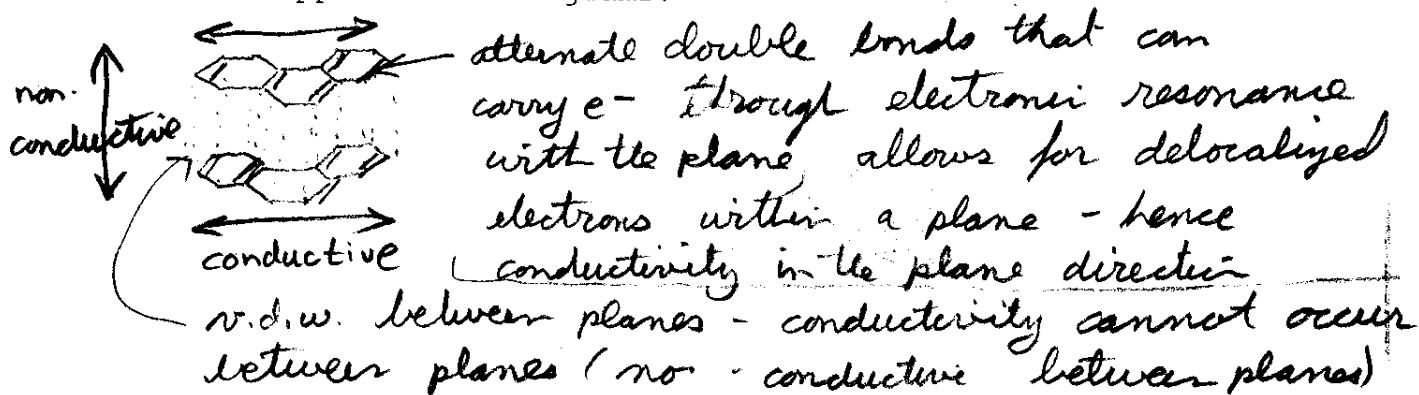 non-
conductive
alternate double bonds that can
carry e- through electronic resonance
with the plane allows for delocalized
electrons within a plane - hence
conductive
conductivity in the plane direction
v.d.w. between planes - conductivity cannot occur
between planes (no - conductive between planes)